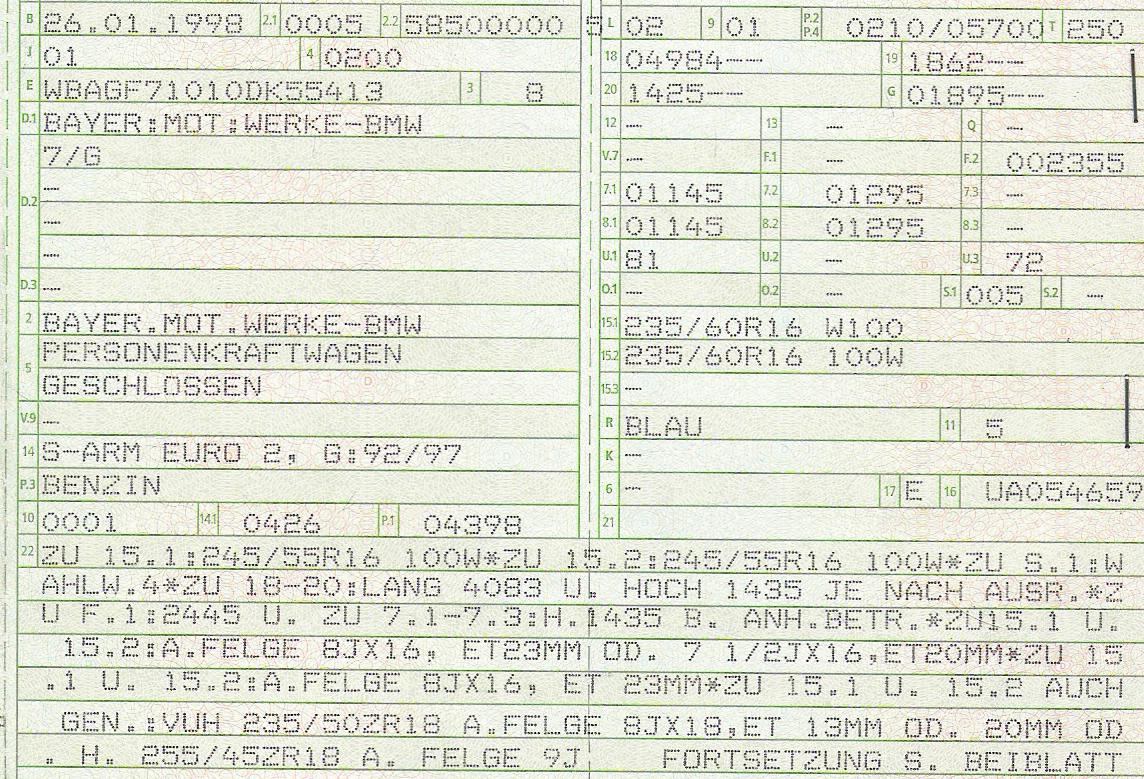 B 26.01.1998 2.1 0005 2.2 58500000 5
J 01 4 0200
E WBAGF71010DK55413 3 8
D.1 BAYER:MOT:WERKE-BMW
7/G
D.2 --
--
--
D.3 --
2 BAYER.MOT.WERKE-BMW
5 PERSONENKRAFTWAGEN
GESCHLOSSEN
V.9 --
14 S-ARM EURO 2, G:92/97
P.3 BENZIN
10 0001 14.1 0426 P.1 04398
L 02 9 01 P.2 P.4 0210/05700 T 250
18 04984-- 19 1862--
20 1425-- G 01895--
12 -- 13 -- Q --
V.7 -- F.1 -- F.2 002355
7.1 01145 7.2 01295 7.3 --
8.1 01145 8.2 01295 8.3 --
U.1 81 U.2 -- U.3 72
O.1 -- O.2 -- S.1 005 S.2 --
15.1 235/60R16 W100
15.2 235/60R16 100W
15.3 --
R BLAU 11 5
K --
6 -- 17 E 16 UA054659
21
22 ZU 15.1:245/55R16 100W*ZU 15.2:245/55R16 100W*ZU S.1:W
AHLW.4*ZU 18-20:LANG 4083 U. HOCH 1435 JE NACH AUSR.*Z
U F.1:2445 U. ZU 7.1-7.3:H.1435 B. ANH.BETR.*ZU15.1 U.
15.2:A.FELGE 8JX16, ET23MM OD. 7 1/2JX16,ET20MM*ZU 15
.1 U. 15.2:A.FELGE 8JX16, ET 23MM*ZU 15.1 U. 15.2 AUCH
GEN.:VUH 235/50ZR18 A.FELGE 8JX18,ET 13MM OD. 20MM OD
. H. 255/45ZR18 A. FELGE 9J FORTSETZUNG S. BEIBLATT